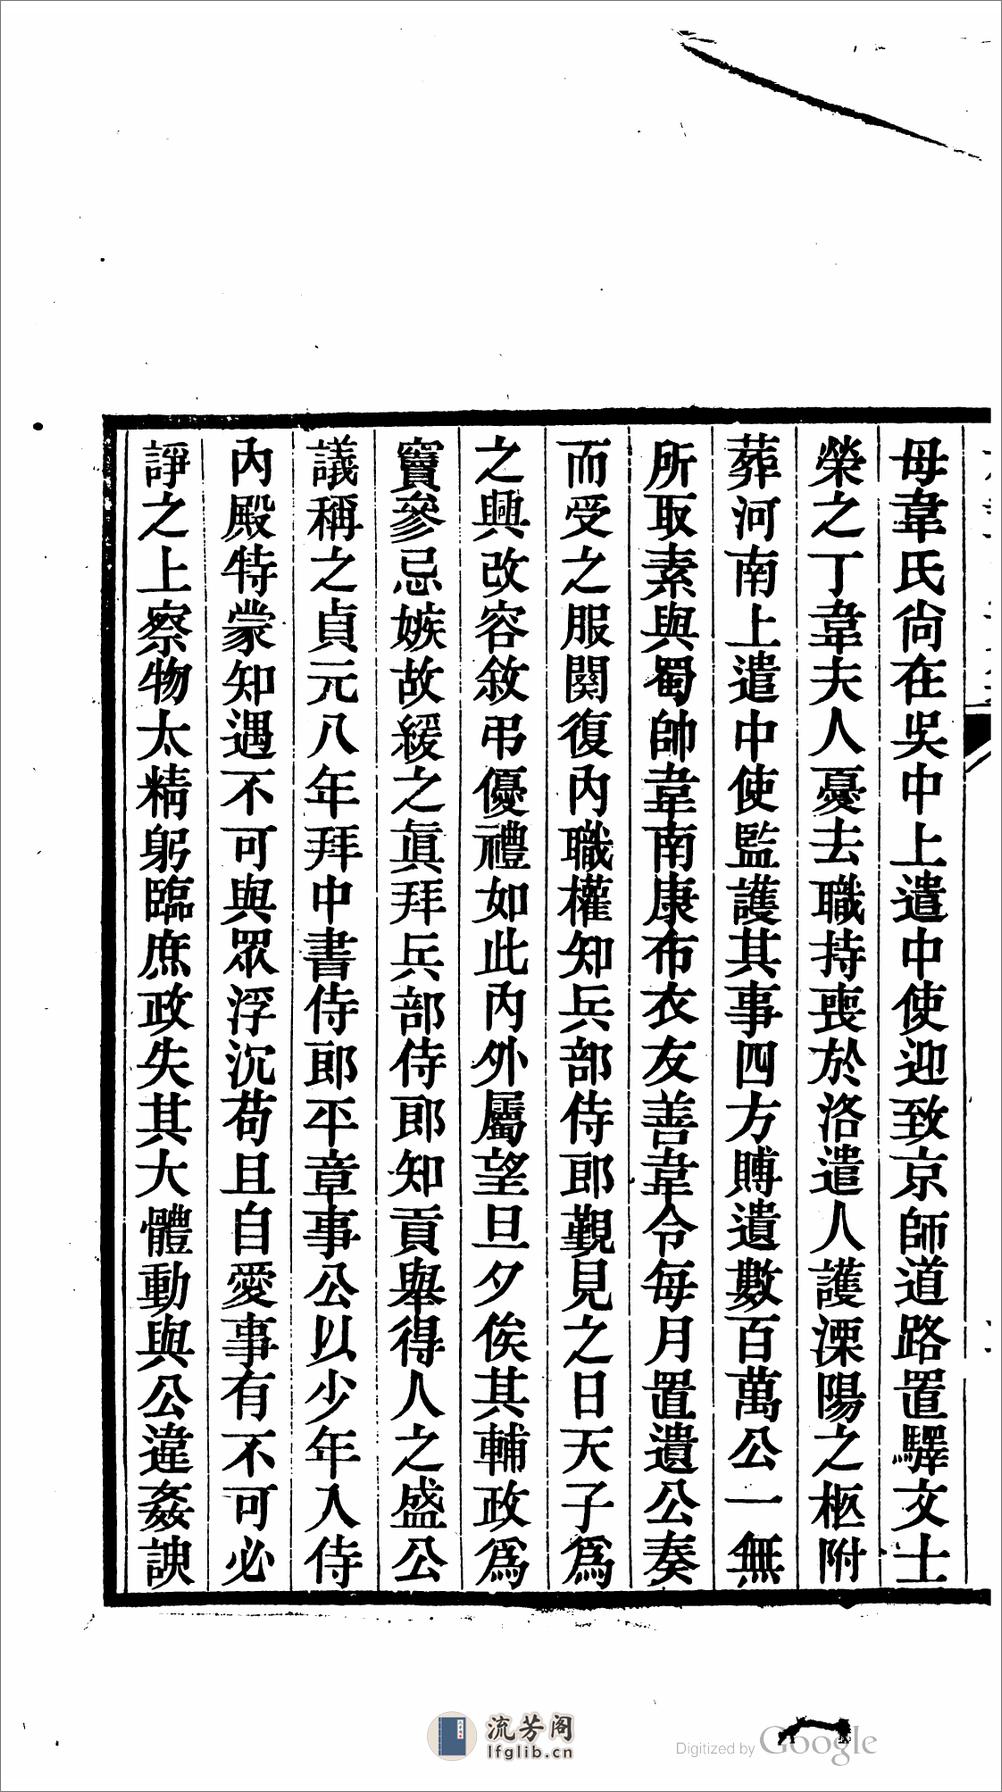 母韋氏尙在吳中上遣中使迎致京師道路置驛文士
榮之丁韋夫人憂去職持喪於洛遣人護溧陽之柩附
葬河南上遣中使監護其事四方賻遺數百萬公一無
所取素與蜀帥韋南康布衣友善韋令每月置遺公奏
而受之服闋復內職權知兵部侍郎覲見之日天子爲
之興改容敘弔優禮如此內外屬望旦夕俟其輔政爲
竇參忌嫉故緩之眞拜兵部侍郎知貢舉得人之盛公
議稱之貞元八年拜中書侍郎平章事公以少年入侍
內殿特蒙知遇不可與眾浮沉苟且自愛事有不可必
諍之上察物太精躬臨庶政失其大體動與公違姦諛
流芳阁
lfglib.cn
Digitized by Google